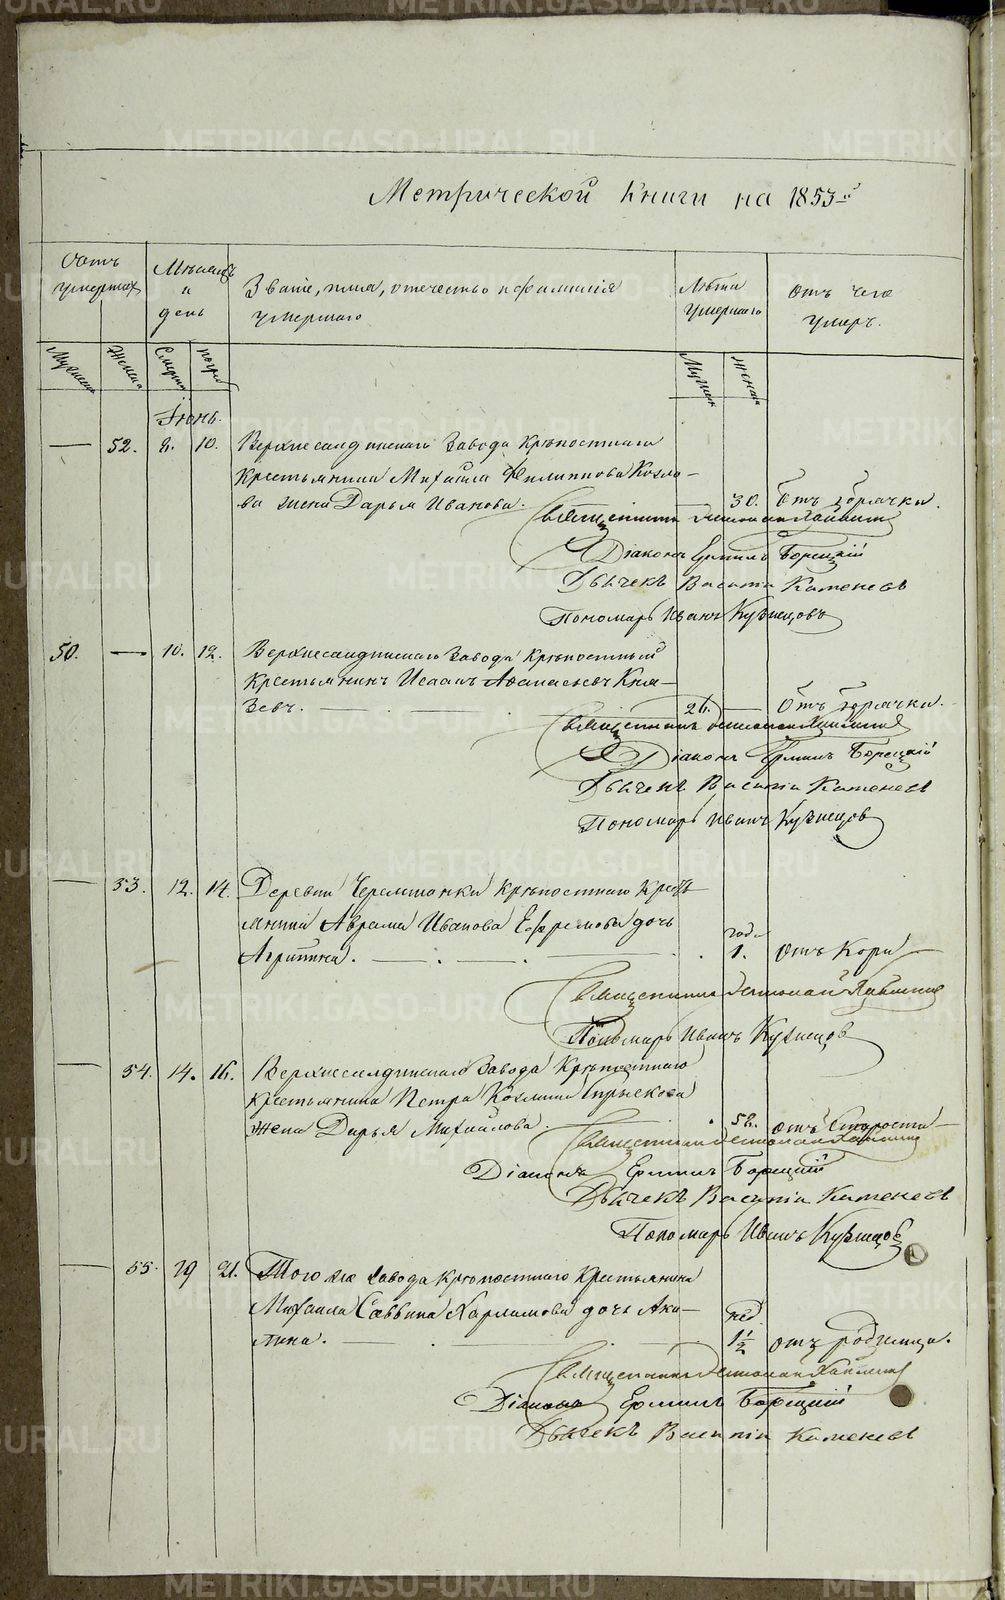 Метрической книги на 1853й
Счетъ умершихъ
Мѣсяцъ и день
Званіе, имя, отечество и фамилія умершаго
Лѣта умершаго
Отъ чего умеръ.
Мужеска
Женска
Смерти
погреб
Мужеск
Женск
Іюнь.
— 52. 8. 10. Верхнесалдинскаго Завода крѣпостнаго
Крестьянина Михаила Филиппова Козло-
ва жена Дарья Иванова. — 30. Отъ горячки.
Священникъ
Діаконъ Ермилъ Борецкій
Дьячекъ Василій Каменевъ
Пономарь Иванъ Кузнецовъ
50. — 10. 12. Верхнесалдинскаго Завода Крѣпостный
Крестьянинъ Исаакъ Аѳанасьевъ Кня-
зевъ. — 26. — Отъ горячки.
Священникъ
Діаконъ Ермилъ Борецкій
Дьячекъ Василій Каменевъ
Пономарь Иванъ Кузнецов
— 53. 12. 14. Деревни Черемшанки крѣпостнаго Крест-
янина Аврама Иванова Ефремова дочь
Агрипина. — год. 1. отъ Кори
Священникъ
Пономарь Иванъ Кузнецов
— 54. 14. 16. Верхнесалдинскаго Завода Крѣпостнаго
крестьянина Петра Козмина
жена Дарья Михайлова. 56. отъ Старости
Священникъ
Діаконъ Ермилъ Борецкій
Дьячекъ Василій Каменевъ
Пономарь Иванъ Кузнецов
— 55. 19 21. Того же Завода крѣпостнаго Крестьянина
Михаила Саввина Харламова дочь Аку-
лина. — нед. 1½ отъ родимца.
Священникъ
Діаконъ Ермилъ Борецкій
Дьячекъ Василій Каменевъ
METRIKI.GASO-URAL.RU